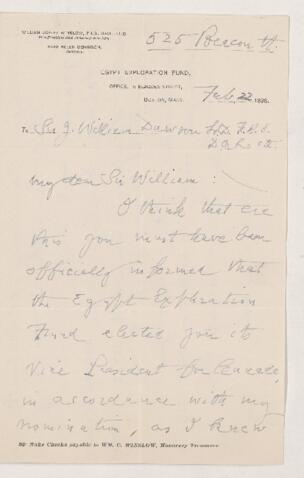 525 Beacon St.
EGYPT EXPLORATION FUND,
OFFICE, BEACON STREET,
BOSTON, MASS. Feb. 22 1896.
To Sir J. William Dawson LL.D. F.R.S.
My dear Sir William:
I think that ere
this you must have been
officially informed that
the Egypt Exploration
Fund elected you its
Vice President for Canada,
in accordance with my
nomination, as I knew
Make Checks payable to WM. C. WINSLOW, Honorary Treasurer